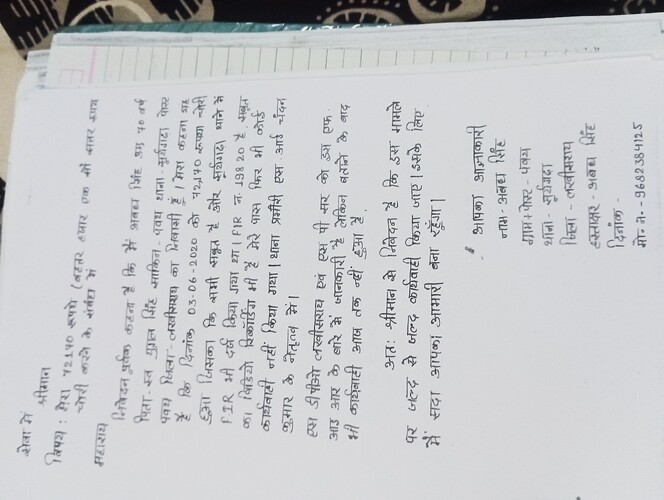 सेवा में
श्रीमान
विषय : मेरा 72170 रूपये (बहतर हजार एक सौ सतर रूपय
चोरी करने के संबंध में
महाशय
निवेदन पूर्वक कहना है कि मैं अवध सिंह उम्र 70 वर्ष
पिता - स्व सिंह साकिन - पवय थाना - सूर्यगढ़ा पोस्ट
पवय जिला - लखीसराय का निवासी हूँ। मेरा कहना यह
है कि दिनांक 03-06-2020 को 72170 रूपया चोरी
हुआ जिसका कि सभी सबूत है और सूर्यगढ़ा थाने में
FIR भी दर्ज किया गया था। FIR नं. 198 20 है. सबूत
का विडियो रिकार्डिंग भी है मेरे पास फिर भी कोई
कार्यवाही नहीं किया गया। थाना प्रभारी एस. आई चंदन
कुमार के नेतृत्व में।
एस डीपीओ लखीसराय एवं एस पी सर को इस एफ.
आइ आर के बारे में जानकारी है लेकिन बताने के बाद
भी कार्यवाही आज तक नहीं हुआ है.
अतः श्रीमान से निवेदन है कि इस मामले
पर जल्द से जल्द कार्यवाही किया जाए। इसके लिए
मैं सदा आपका आभारी बना रहूँगा।
आपका आज्ञाकारी
नाम - अवध सिंह
ग्राम + पोस्ट - पवय
थाना - सूर्यगढ़ा
जिला - लखीसराय
हस्ताक्षर - अवध सिंह
दिनांक -
मो० न० - 9682384125